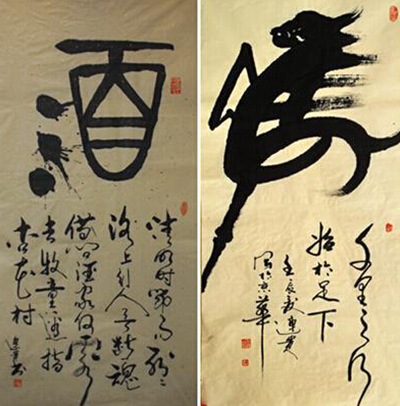 酒
清明时节雨纷々
路上行人欲断魂
借问酒家何处
有牧童遥指
杏花村
馬
千里之行
始於足下